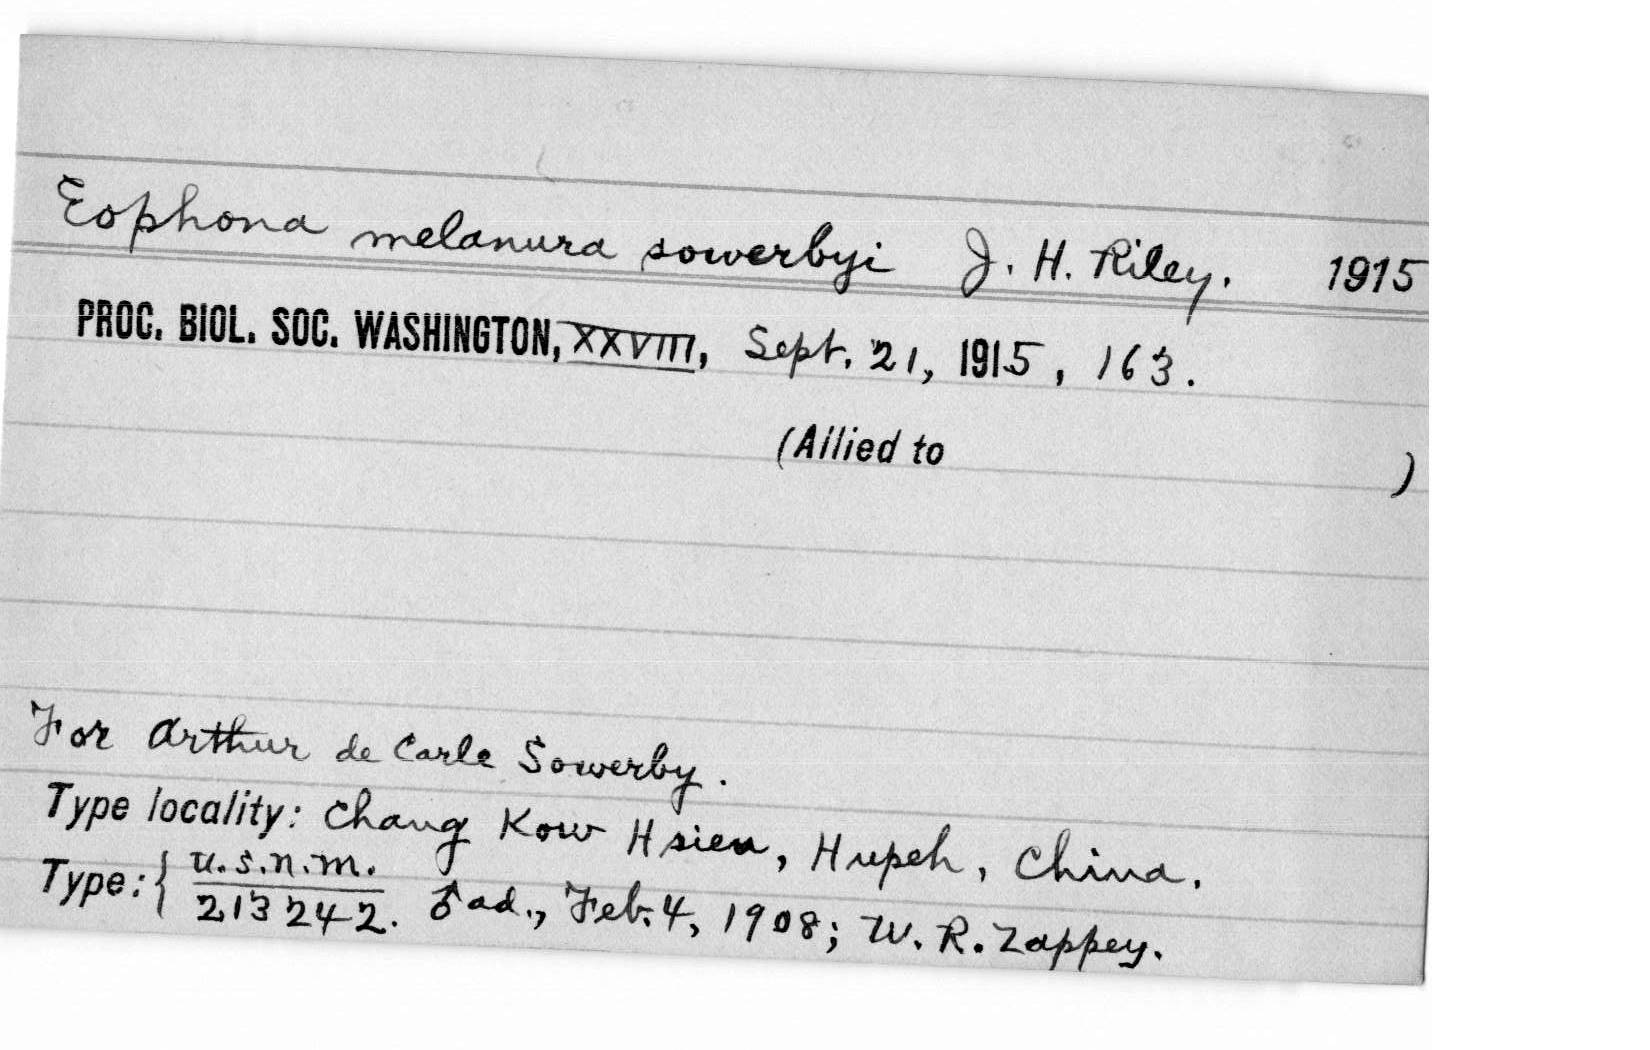 Eophona melanura sowerbyi J. H. Riley. 1915
PROC. BIOL. SOC. WASHINGTON, XXVIII, Sept. 21, 1915, 163.
(Allied to )
For Arthur de Carle Sowerby.
Type locality: Chang Kow Hsien, Hupeh, China.
Type: { U.S.N.M.
213242. ♂ ad., Feb. 4, 1908; W. R. Zappey.